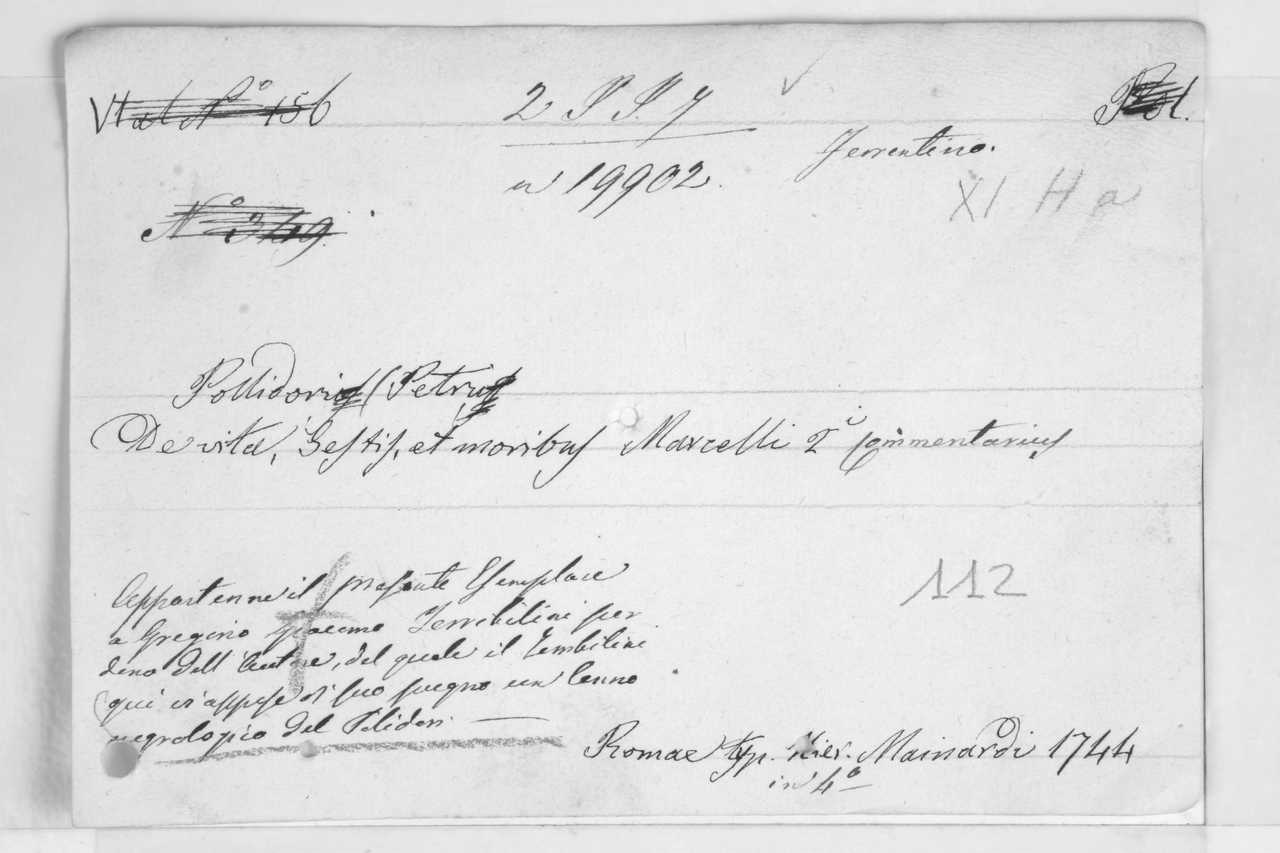 N° 156
2 P P. 7
Pol.
Ferrentino.
n 19902.
XI H a
N° 349
Pollidori (Petri
De vita, Gestis, et moribus Marcelli 2i Commentarius
Appartenne il presente Esemplare
a Gregorio Giacomo Terribilini per
dono dell'Autore, del quale il Terribilini
qui vi appose di suo pugno un Cenno
negrologico del Polidori.
112
Romae typ. Hier. Mainardi 1744
in 4°